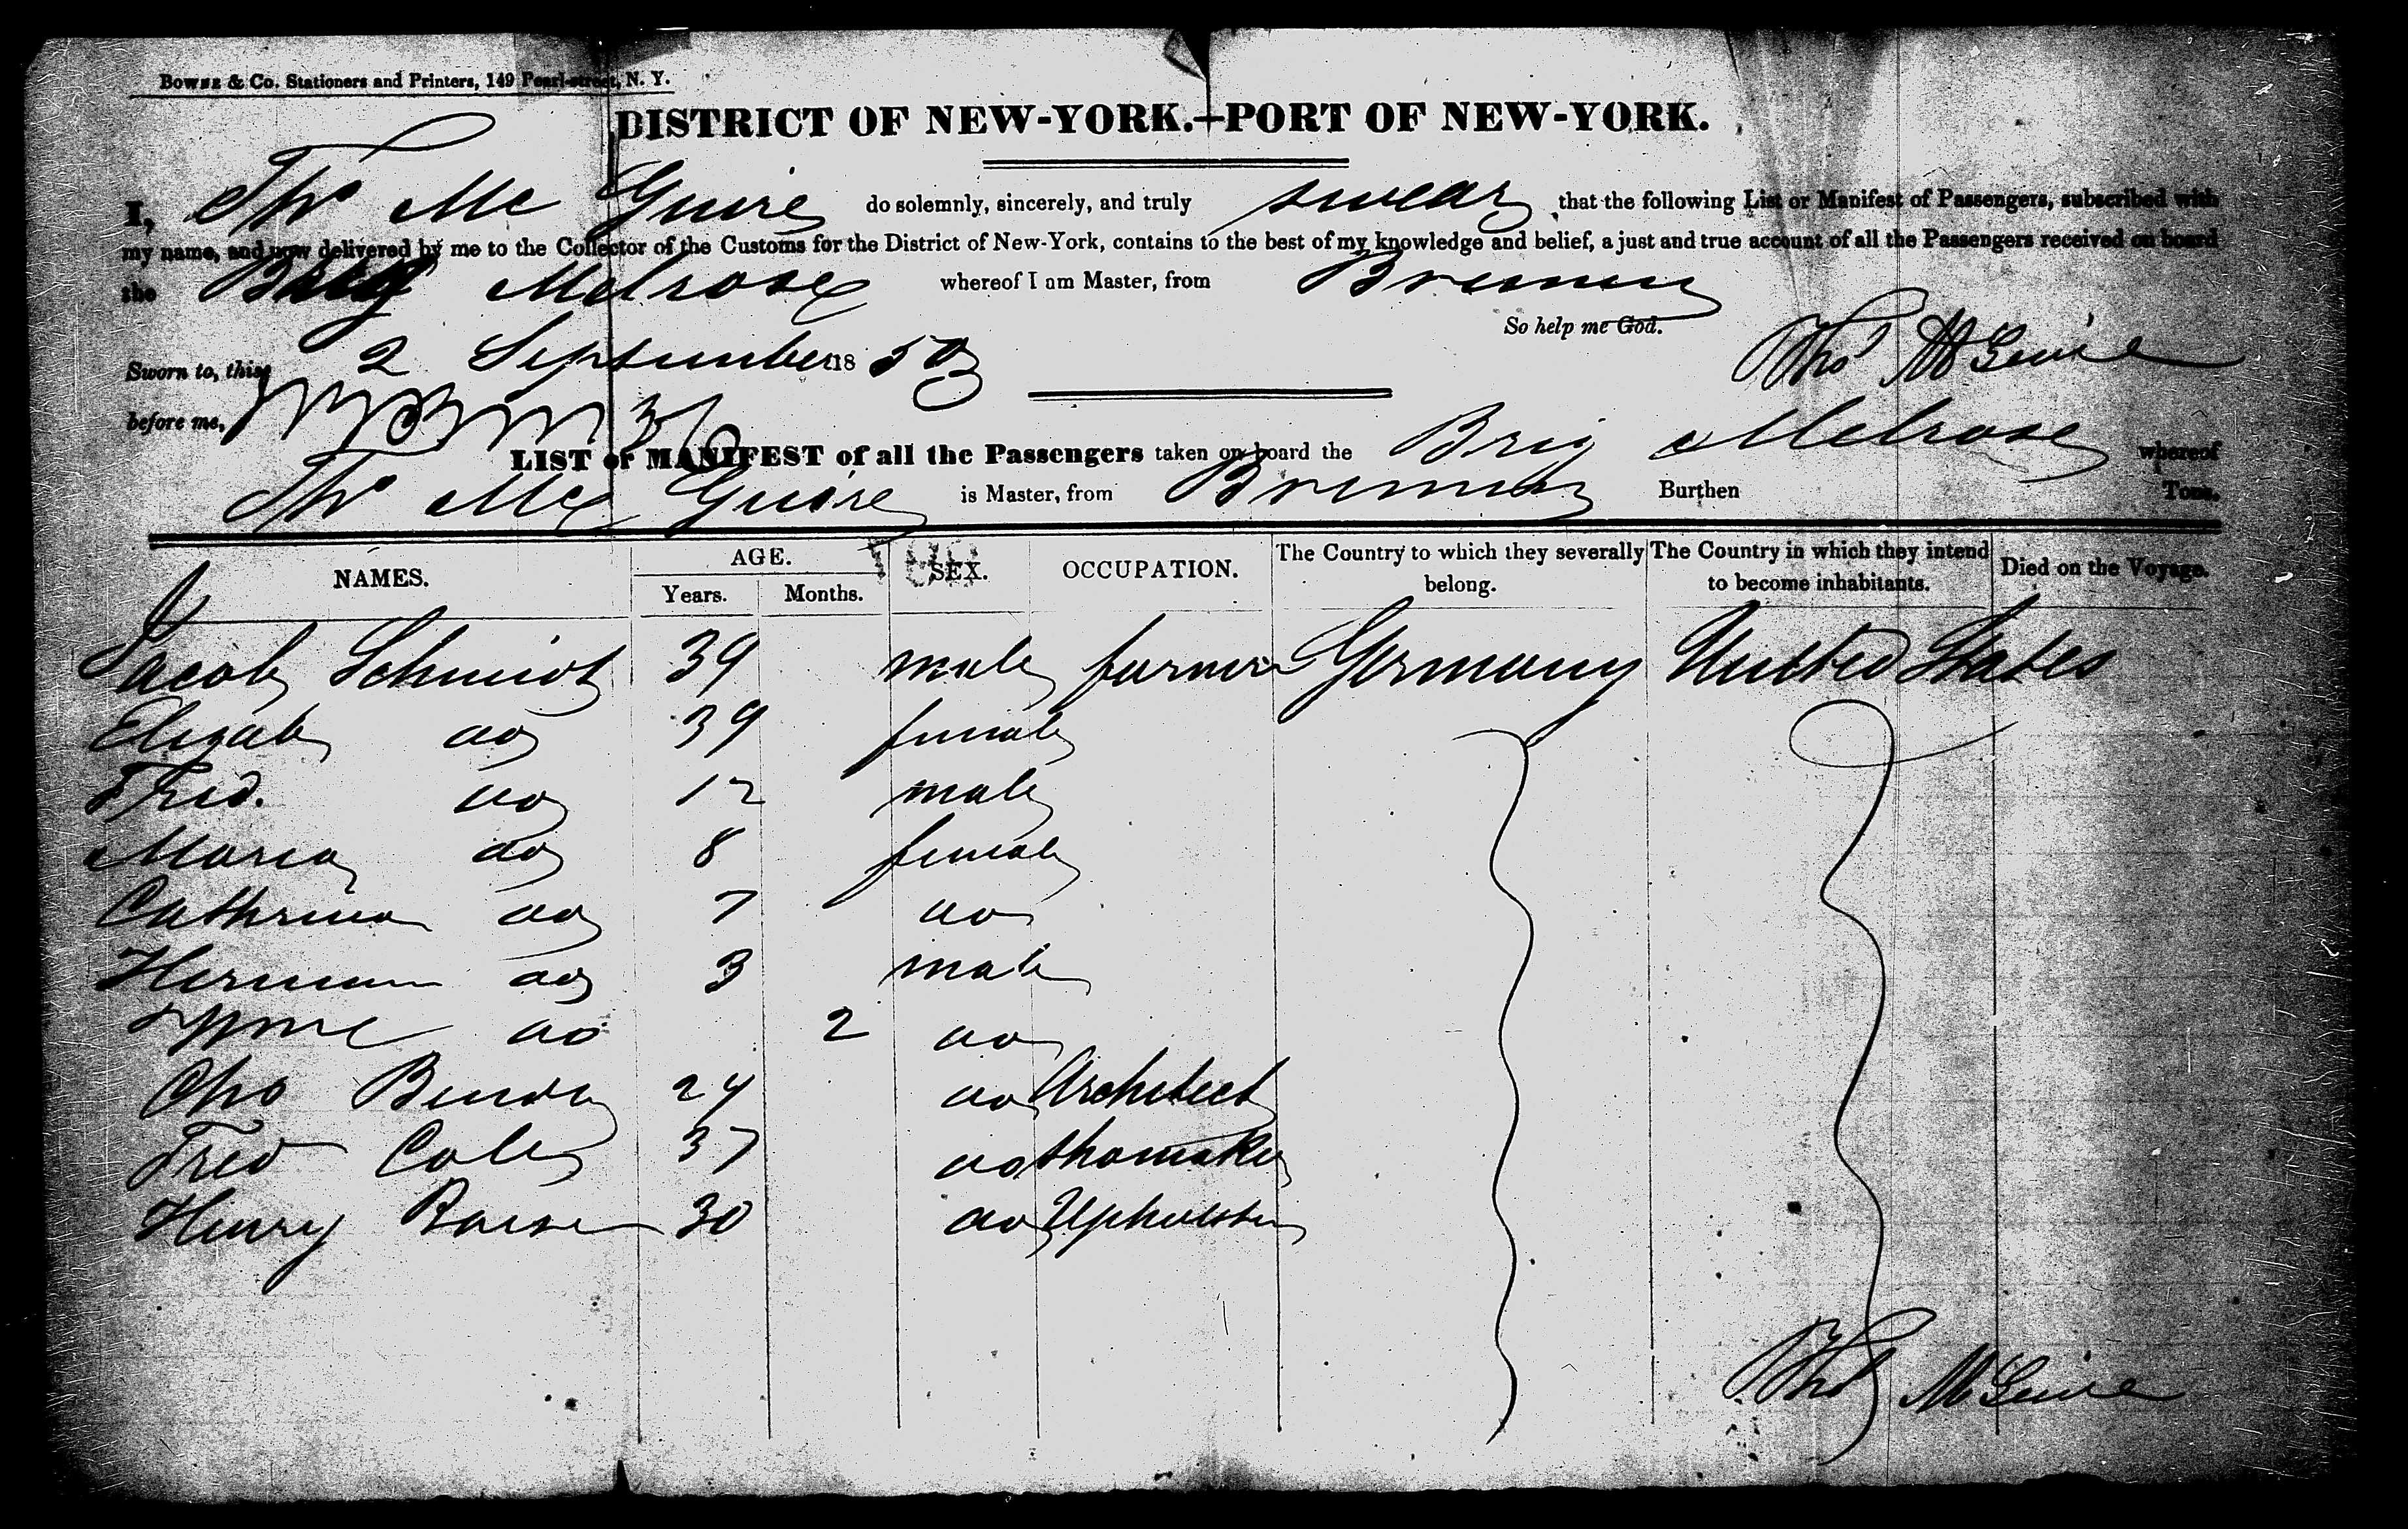 BOWNE & CO. Stationers and Printers, 149 Pearl-street, N. Y.
DISTRICT OF NEW-YORK.—PORT OF NEW-YORK.
I, Thos Mc Guire do solemnly, sincerely, and truly swear that the following List or Manifest of Passengers, subscribed with
my name, and now delivered by me to the Collector of the Customs for the District of New-York, contains to the best of my knowledge and belief, a just and true account of all the Passengers received on board
the Brig Melrose whereof I am Master, from Bremen
So help me God.
Sworn to, this 2 September 1853 Thos McGuire
before me,
LIST or MANIFEST of all the Passengers taken on board the Brig Melrose whereof
Thos Mc Guire is Master, from Bremen Burthen Tons.
NAMES. AGE. Years. Months. SEX. OCCUPATION. The Country to which they severally belong. The Country in which they intend to become inhabitants. Died on the Voyage.
Jacob Schmidt 39 male farmer Germany United States
Elizab do 39 female
Fred. do 12 male
Maria do 8 female
Cathrina do 7 do
Herman do 3 male
do 2 do
Otto Benda 24 do Architect
Fred Cole 37 do Shomaker
Henry 30 do Upholster
Thos McGuire